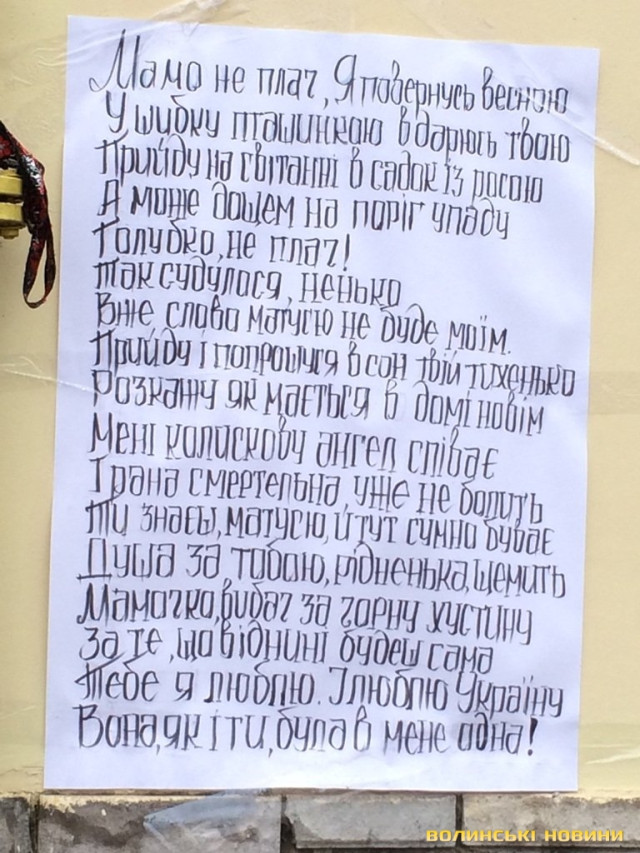 Мамо не плач, Я повернусь весною
У шибку пташинкою вдарюсь твою
Прийду на світанні в садок із росою
А може дощем на поріг упаду
Голубко, не плач!
Так судилося, ненько
Вже слово матусю не буде моїм.
Прийду і попрошуся в сон твій тихенько
Розкажу як мається в домі новім
Мені колискову ангел співає
І рана смертельна уже не болить
Ти знаєш, матусю, й тут сумно буває
Душа за тобою, рідненька, щемить
Мамочко, вибач за чорну хустину
За те, що віднині будеш сама
Тебе я люблю. І люблю Україну
Вона, як і ти, була в мене одна!
ВОЛИНСЬКІ НОВИНИ